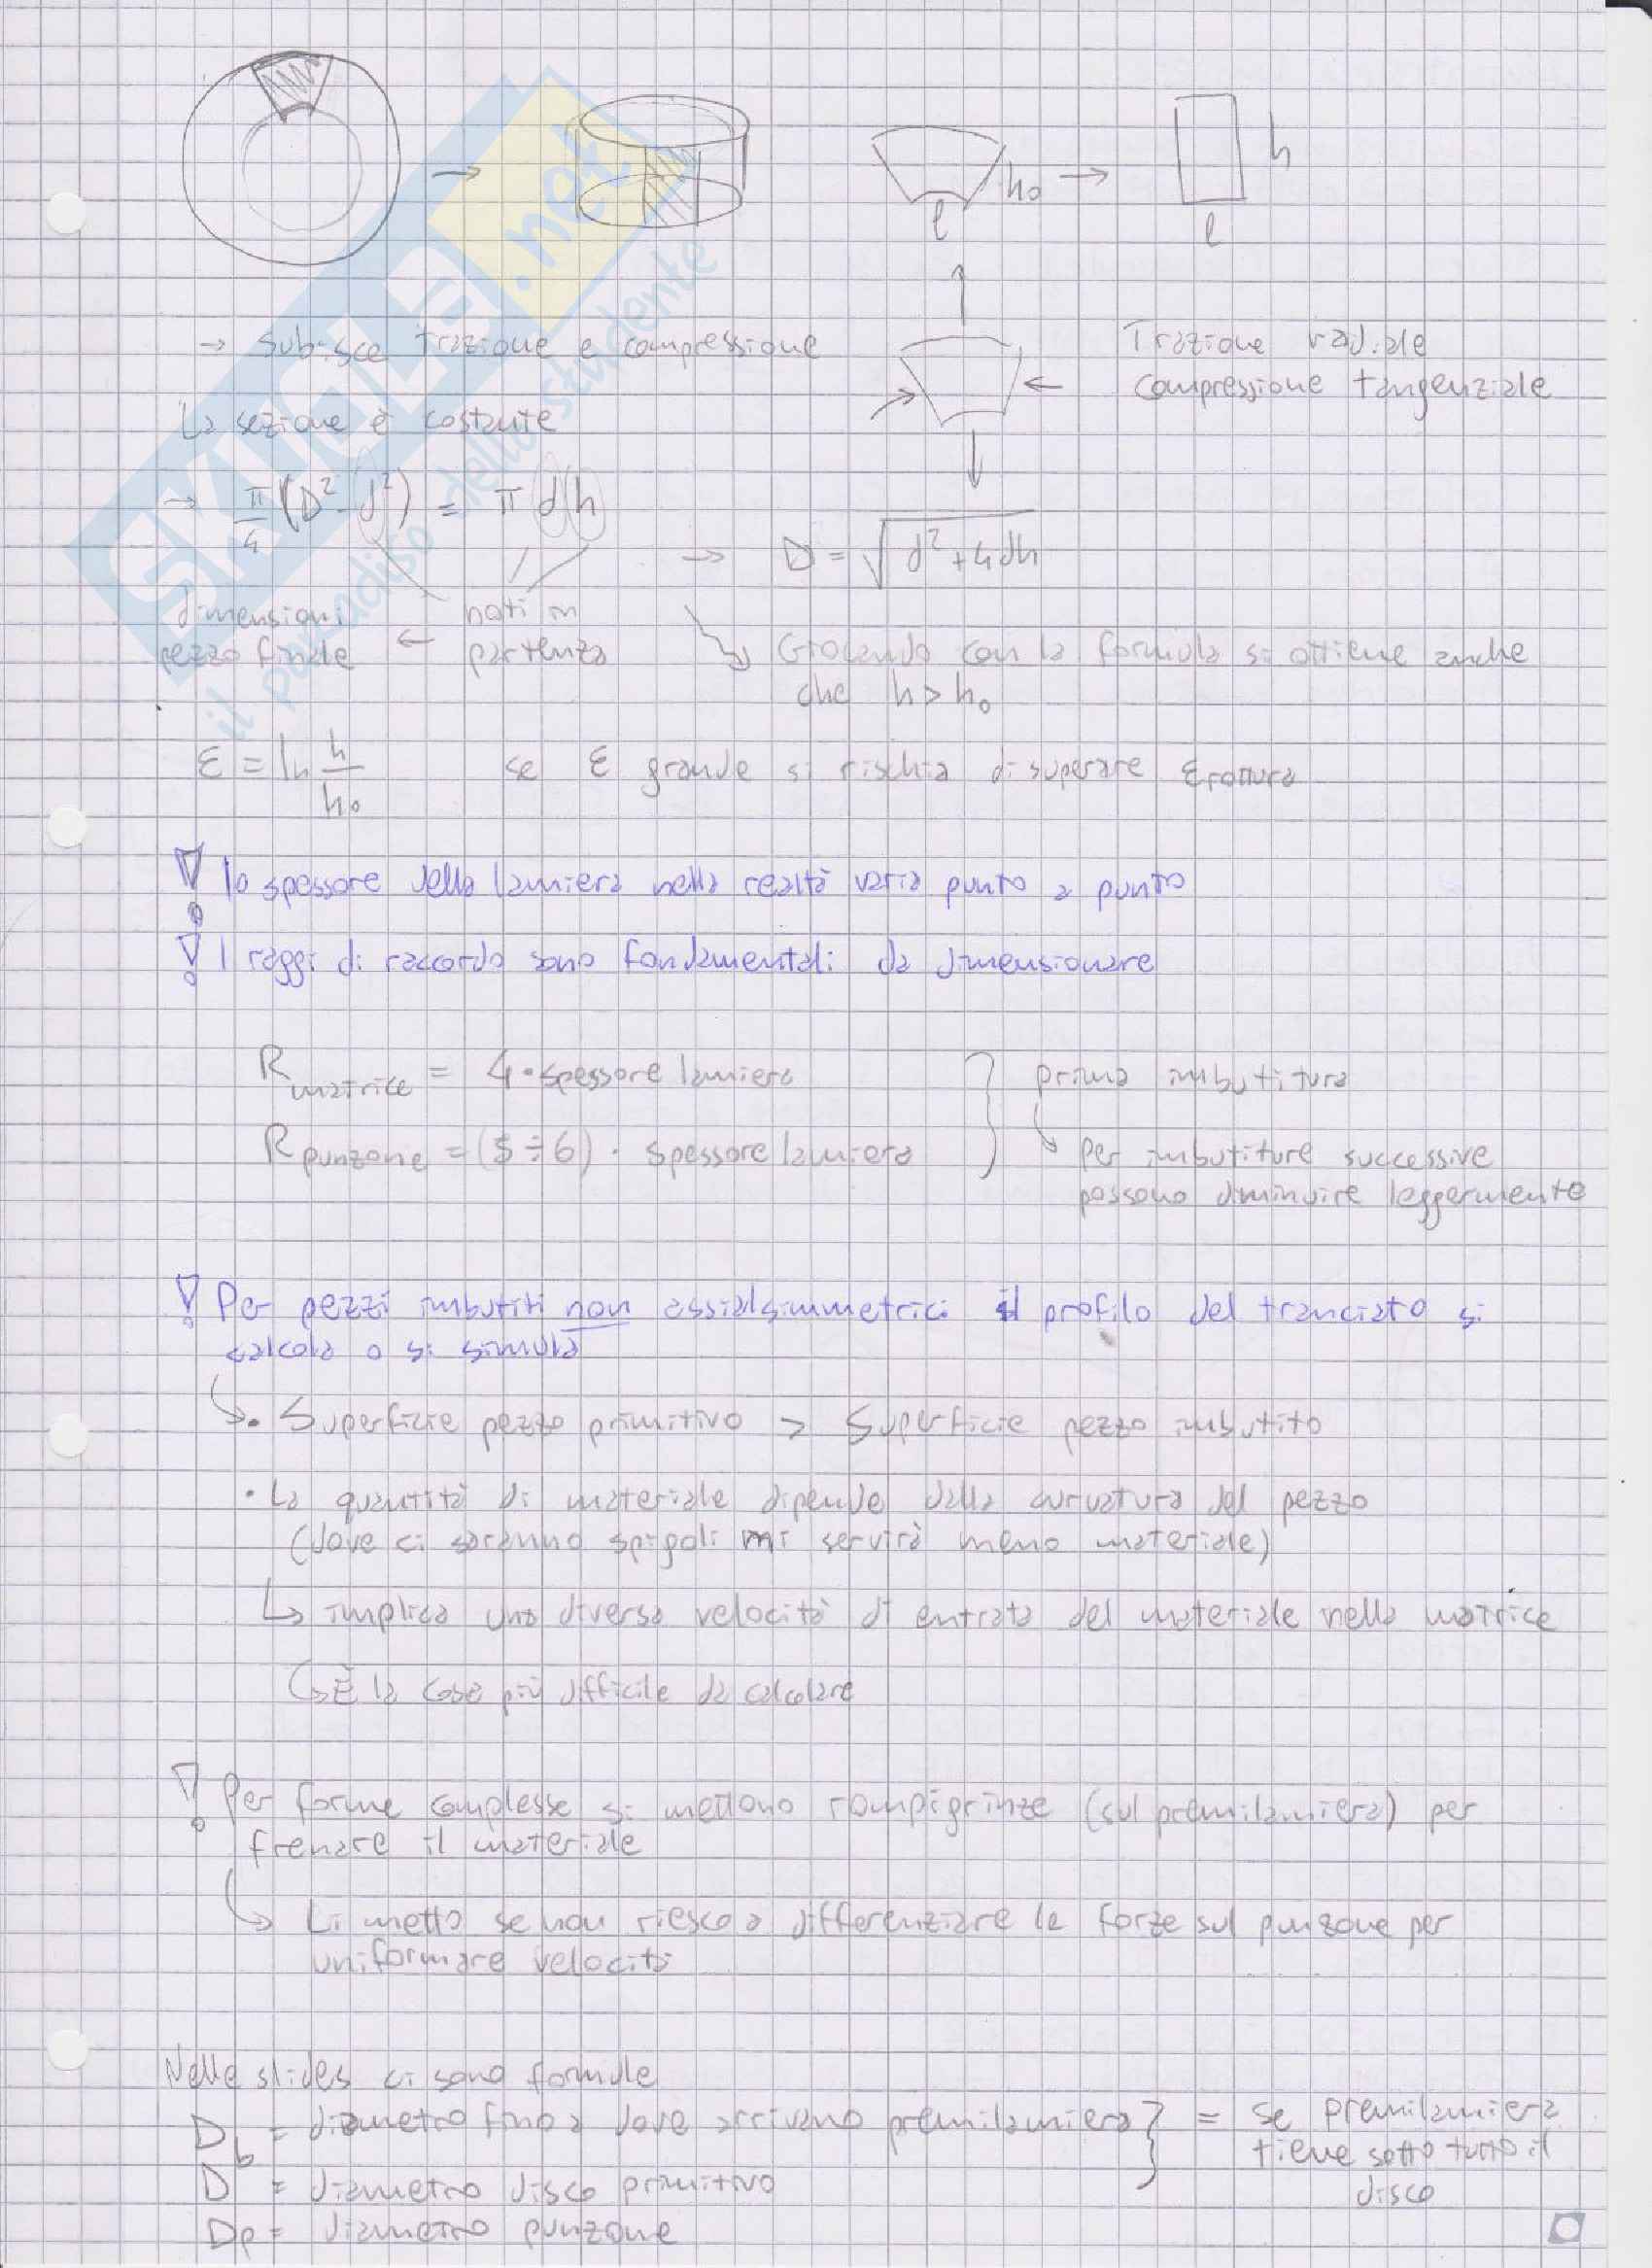 h₀ → h
l l
→ Subisce trazione e compressione
Trazione radiale
compressione tangenziale
La sezione è costante
→ π/4 (D² - d²) = π d h
→ D = √(d² + 4dh)
dimensioni pezzo finale ← noti in partenza
Giocando con la formula si ottiene anche
che h > h₀
ε = ln h/h₀ se ε grande si rischia di superare εrottura
! lo spessore della lamiera nella realtà varia punto a punto
! I raggi di raccordo sono fondamentali da dimensionare
R matrice = 4 · spessore lamiera
R punzone = (5 ÷ 6) · spessore lamiera
} prima imbutitura
↳ per imbutiture successive
possono diminuire leggermente
! Per pezzi imbutiti non assialsimmetrici il profilo del tranciato si
calcola o si simula
↳ • Superficie pezzo primitivo > Superficie pezzo imbutito
• La quantità di materiale dipende dalla curvatura del pezzo
(dove ci saranno spigoli mi servirà meno materiale)
↳ implica una diversa velocità di entrata del materiale nella matrice
↳ È la cosa più difficile da calcolare
! Per forme complesse si mettono rompigrinze (sul premilamiera) per
frenare il materiale
↳ Li metto se non riesco a differenziare le forze sul punzone per
uniformare velocità
Nelle slides ci sono formule
D_b = diametro fino a dove arrivano premilamiera
D = diametro disco primitivo
} = se premilamiera
tiene sotto tutto il
disco
Dp = diametro punzone
SKUOLA.net
il paradiso dello studente